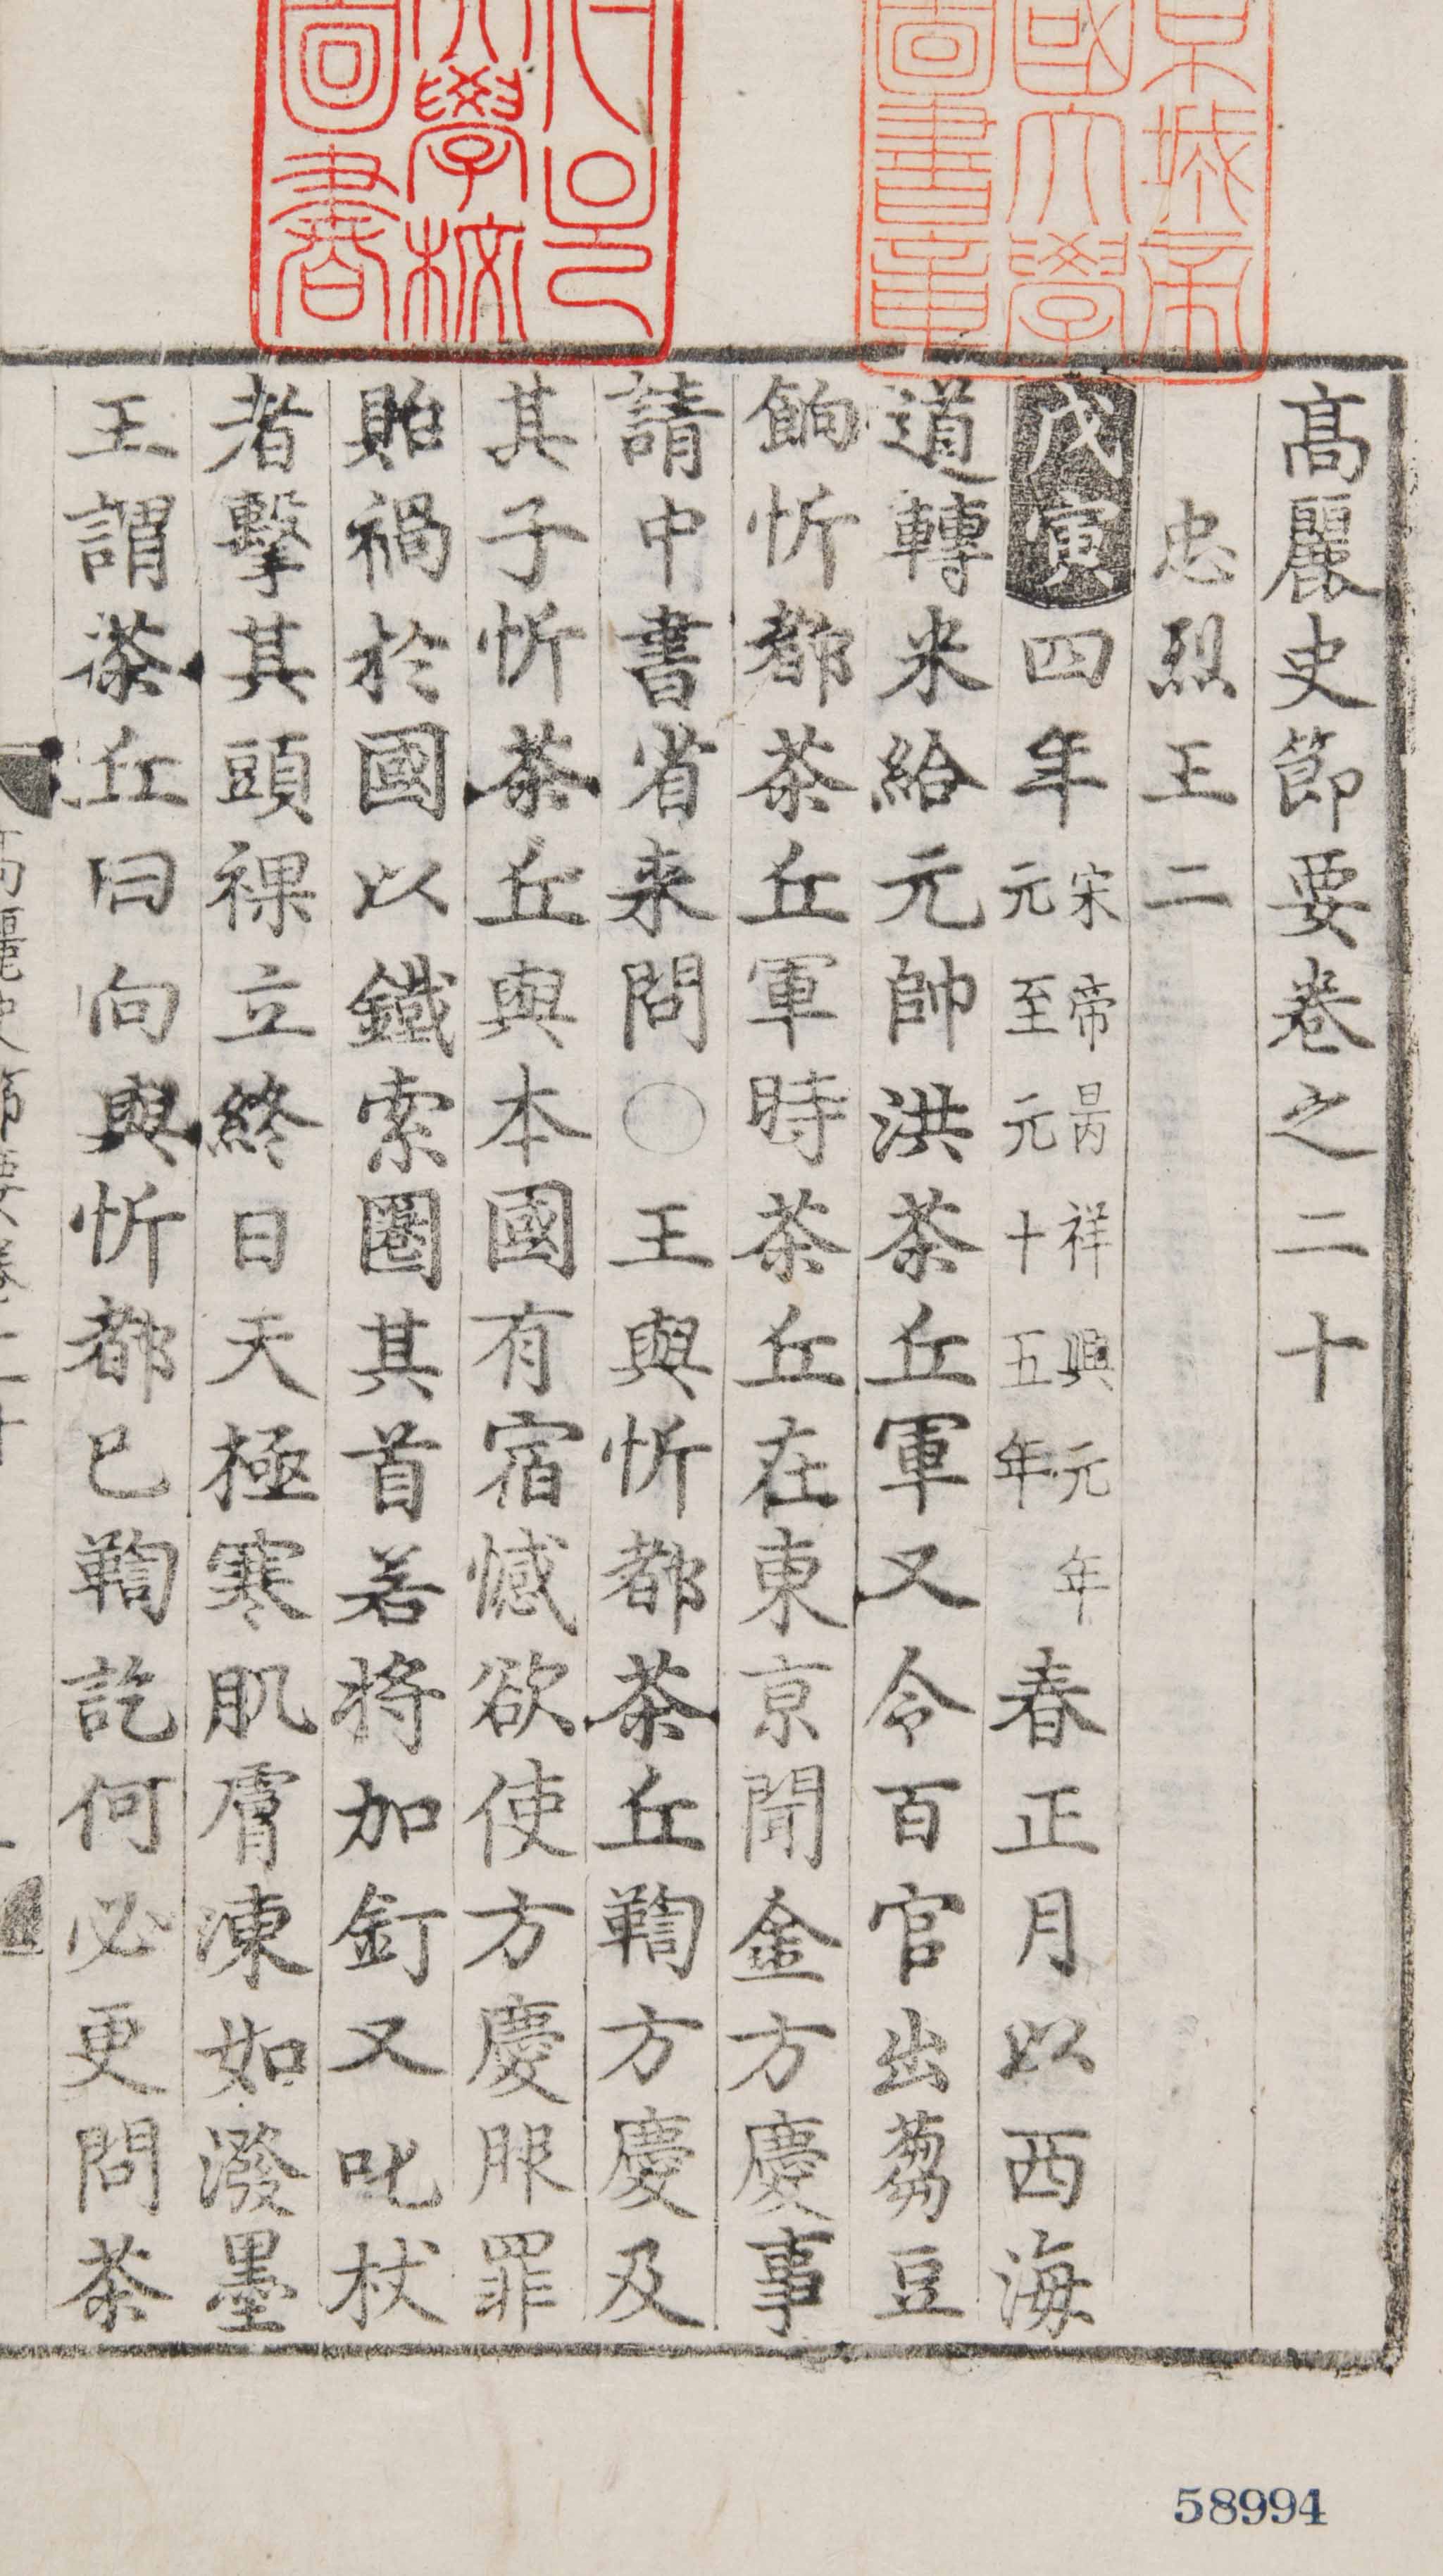 高麗史節要卷之二十
忠烈王二
戊寅四年宋帝昺祥興元年元至元十五年春正月以西海
道轉米給元帥洪茶丘軍又令百官出蒭豆
餉忻都茶丘軍時茶丘在東京聞金方慶事
請中書省来問○王與忻都茶丘鞫方慶及
其子忻茶丘與本國有宿憾欲使方慶服罪
貽禍於國以鐵索圈其首若將加釘又叱杖
者擊其頭裸立終日天極寒肌膚凍如潑墨
王謂茶丘曰向與忻都已鞫訖何必更問茶
京城帝
國大學
圖書章
大學校
圖書
58994